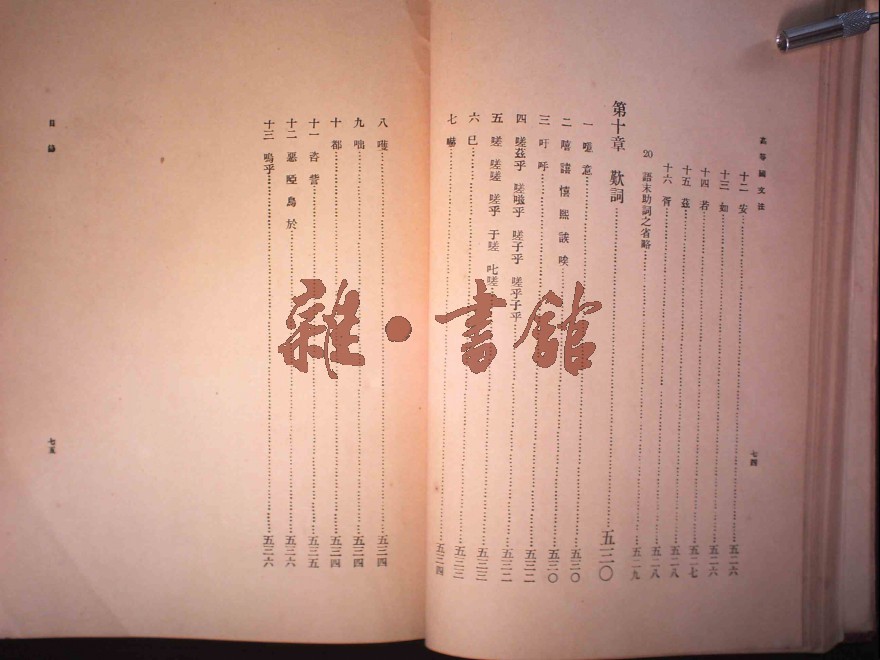 高等國文法
十二 安……五二六
十三 如……五二六
十四 若……五二六
十五 茲……五二七
十六 胥……五二八
20 語末助詞之省略……五二九
第十章 歎詞……五三〇
一 噫 意……五三〇
二 嘻 譆 憘 熙 誒 唉……五三〇
三 吁 呼……五三〇
四 嗟茲乎 嗟嗞乎 嗟子乎 嗟乎子乎……五三二
五 嗟 嗟嗟 嗟乎 于嗟 叱嗟……五三二
六 已……五三三
七 嚇……五三四
七四
目錄
八 嘑……五三四
九 咄……五三四
十 都……五三四
十一 呰 訾……五三五
十二 惡 啞 烏 於……五三六
十三 嗚乎……五三六
七五
雜·書館